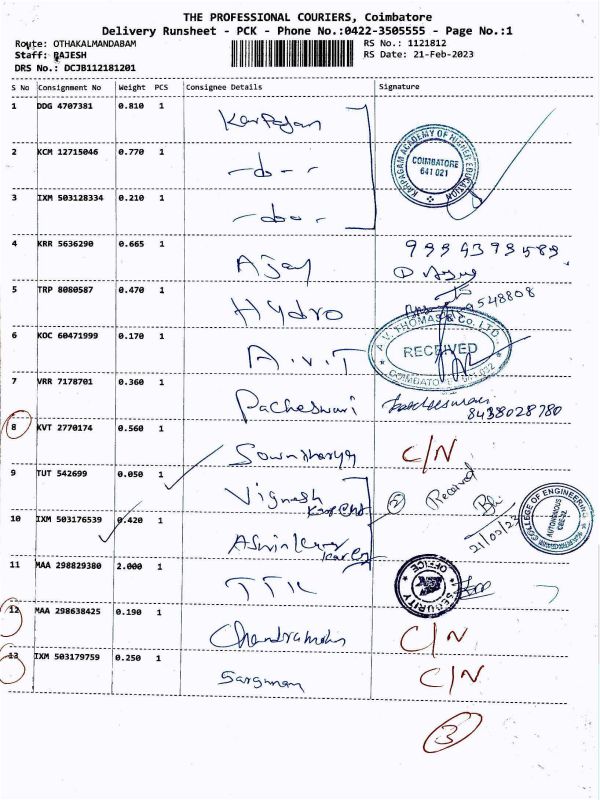 THE PROFESSIONAL COURIERS, Coimbatore
Delivery Runsheet - PCK - Phone No.:0422-3505555 - Page No.:1
Route: OTHAKALMANDABAM
RS No.: 1121812
Staff: RAJESH
RS Date: 21-Feb-2023
DRS No.: DCJB112181201
S No Consignment No Weight PCS Consignee Details Signature
1 DDG 4707381 0.810 1 Karpagam
KARPAGAM ACADEMY OF HIGHER EDUCATION COIMBATORE 641 021
2 KCM 12715046 0.770 1 -do-
3 IXM 503128334 0.210 1 -do-
4 KRR 5636290 0.665 1 Ajay 9994393589
5 TRP 8080587 0.470 1 Hydro 9548808
6 KOC 60471999 0.170 1 A.V.T
A.V. THOMAS & Co. LTD. RECEIVED COIMBATORE
7 VRR 7178701 0.360 1 Pacheswari 8438028780
8 KVT 2770174 0.560 1 Sowntharya C/N
9 TUT 542699 0.050 1 Vignesh
2 Received
21/02/23
COLLEGE OF ENGINEERING AUTONOMOUS
10 IXM 503176539 0.420 1
11 MAA 298829380 2.000 1 TTK
SECURITY OFFICE
12 MAA 298638425 0.190 1 Chandramohan C/N
13 IXM 503179759 0.250 1 Sargunam C/N
3